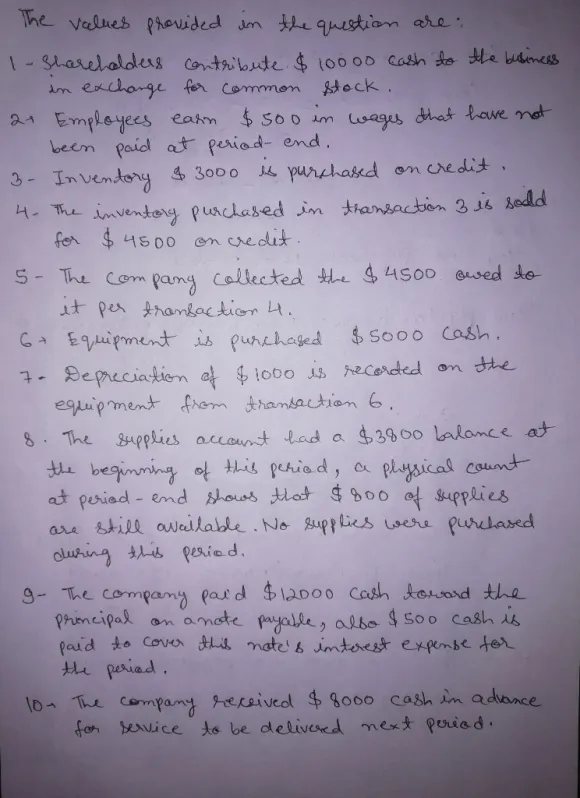 The values provided in the question are:
1 - Shareholders contribute $ 10000 cash to the business
in exchange for common stock.
2→ Employees earn $ 500 in wages that have not
been paid at period-end.
3 - Inventory $ 3000 is purchased on credit.
4- The inventory purchased in transaction 3 is sold
for $ 4500 on credit.
5 - The company collected the $ 4500 owed to
it per transaction 4.
6→ Equipment is purchased $5000 cash.
7 - Depreciation of $1000 is recorded on the
equipment from transaction 6.
8. The supplies account had a $3800 balance at
the beginning of this period, a physical count
at period-end shows that $800 of supplies
are still available. No supplies were purchased
during this period.
9- The company paid $12000 cash toward the
principal on a note payable, also $500 cash is
paid to cover this note's interest expense for
the period.
10→ The company received $ 8000 cash in advance
for service to be delivered next period.